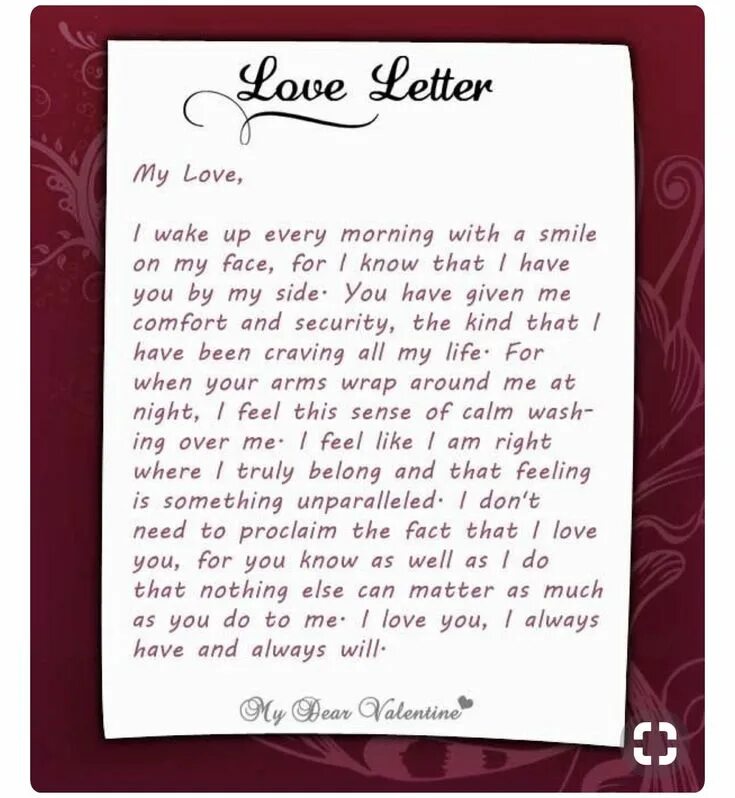 Love Letter
My Love,
I wake up every morning with a smile
on my face, for I know that I have
you by my side. You have given me
comfort and security, the kind that I
have been craving all my life. For
when your arms wrap around me at
night, I feel this sense of calm wash-
ing over me. I feel like I am right
where I truly belong and that feeling
is something unparalleled. I don't
need to proclaim the fact that I love
you, for you know as well as I do
that nothing else can matter as much
as you do to me. I love you, I always
have and always will.
My Dear Valentine